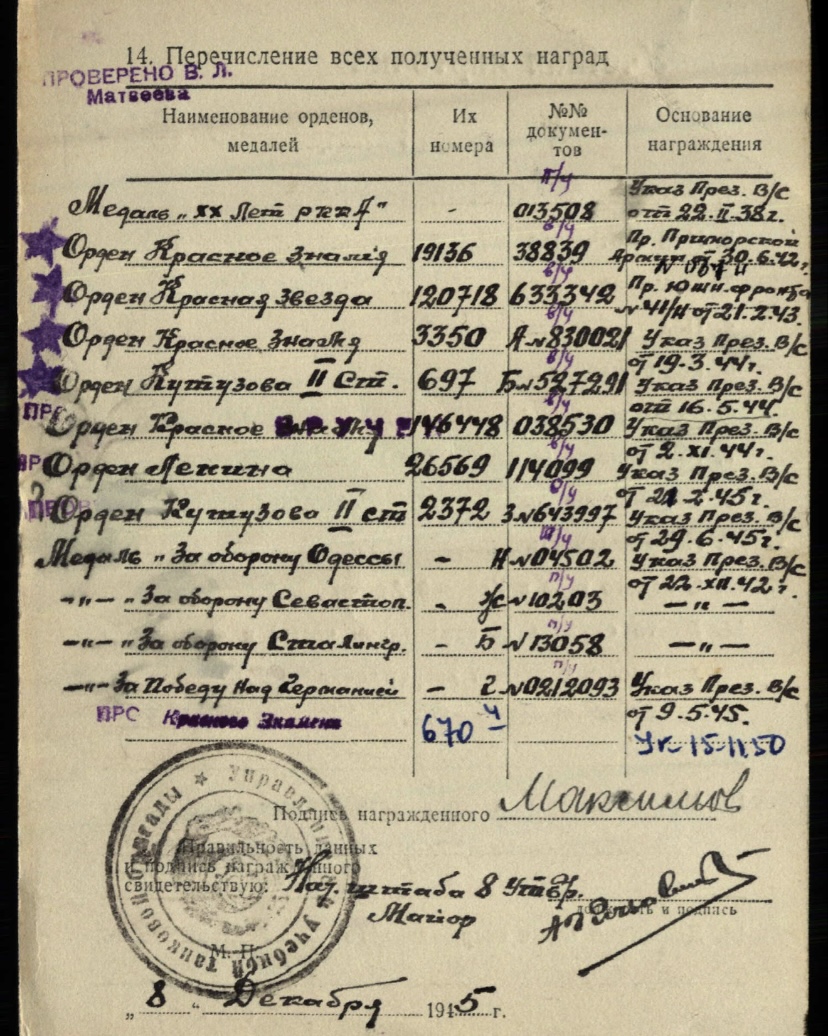 14. Перечисление всех полученных наград
ПРОВЕРЕНО В. Л.
Матвеева
Наименование орденов, медалей | Их номера | №№ документов | Основание награждения
Медаль „XX Лет РККА" | - | п/у 013508 | Указ През. В/С от 22.II.38г.
Орден Красное Знамя | 19136 | в/у 38839 | Пр. Приморской Армии от 30.6.42г.
Орден Красная Звезда | 120718 | в/у 633342 | Пр. Южн. фронта №41/Н от 21.2.43.
Орден Красное Знамя | 3350 | в/у А№830021 | Указ През. В/С от 19.3.44г.
Орден Кутузова II Ст. | 697 | в/у Б№527291 | Указ През. В/С от 16.5.44.
ПРС Орден Красное | 146448 | в/у 038530 | Указ През. В/С от 2.XI.44г.
Орден Ленина | 26569 | в/у 114099 | Указ През. В/С от 21.2.45г.
Орден Кутузова II ст | 2372 | З№643997 | Указ През. В/С от 29.6.45г.
Медаль „За оборону Одессы | - | п/у Н№04502 | Указ През. В/С от 22.XII.42г.
—„— „За оборону Севастоп. | - | п/у №10203 | —„—
—„— „За оборону Сталингр. | - | п/у Б №13058 | —„—
—„— За Победу над Германией | - | п/у Г №0212093 | Указ През. В/С от 9.5.45.
ПРС Красного Знамени | 670 | Ук-15-11.50
Подпись награжденного Максимов
Правильность данных
и подпись награжденного
свидетельствую: Нач. штаба 8
Майор
должность и подпись
М. П.
Учебной Танковой Бригады
„8" Декабря 1945 г.